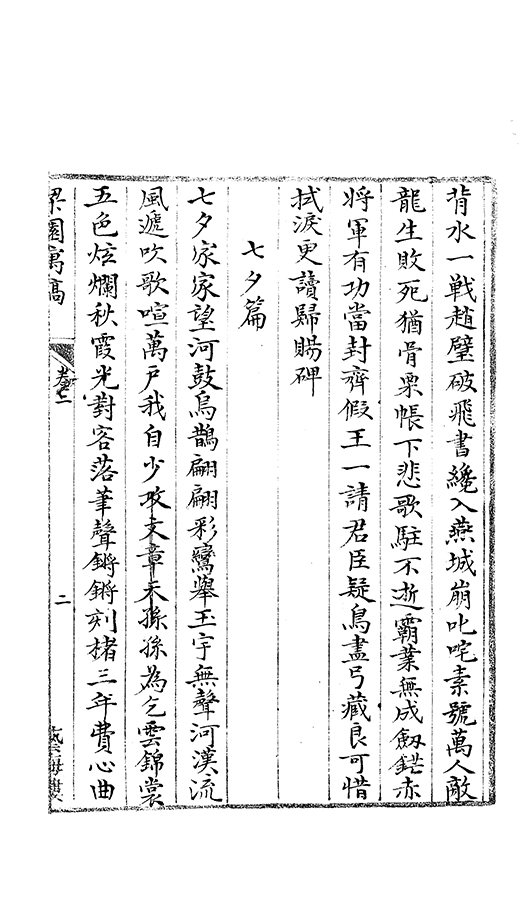 背水一戰趙壁破飛書纔入燕城崩叱咤素號萬人敵
龍生敗死猶骨栗帳下悲歌騅不逝霸業無成劔鋩赤
將軍有功當封齊假王一請君臣疑鳥盡弓藏良可惜
拭淚更讀歸賜碑
七夕篇
七夕家家望河鼓烏鵲翩翩彩鸞舉玉宇無聲河漢流
風遞吹歌喧萬戶我自少攻文章天孫孫為乞雲錦裳
五色炫爛秋霞光對客落筆聲鏘鏘刻楮三年費心曲
梁園寓稿
卷二
二